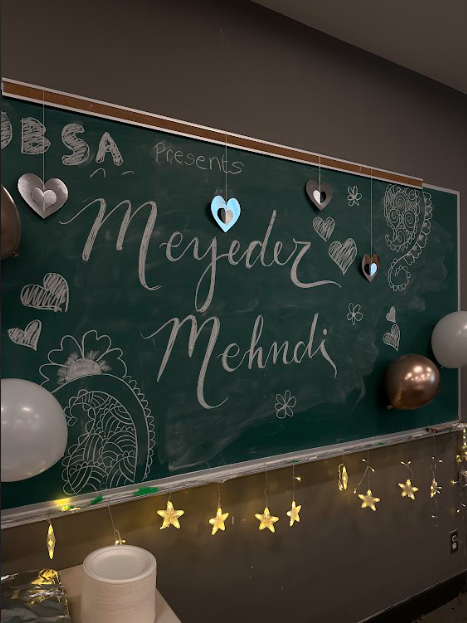 BSA
Presents
Meyeder
Mehndi